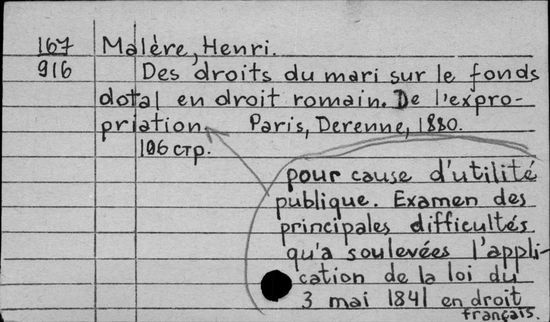 167 Malère, Henri.
916 Des droits du mari sur le fonds
dotal en droit romain. De l'expro-
priation. Paris, Derenne, 1880.
106 стр.
pour cause d'utilité
publique. Examen des
principales difficultés
qu'a soulevées l'appli-
cation de la loi du
3 mai 1841 en droit
français.